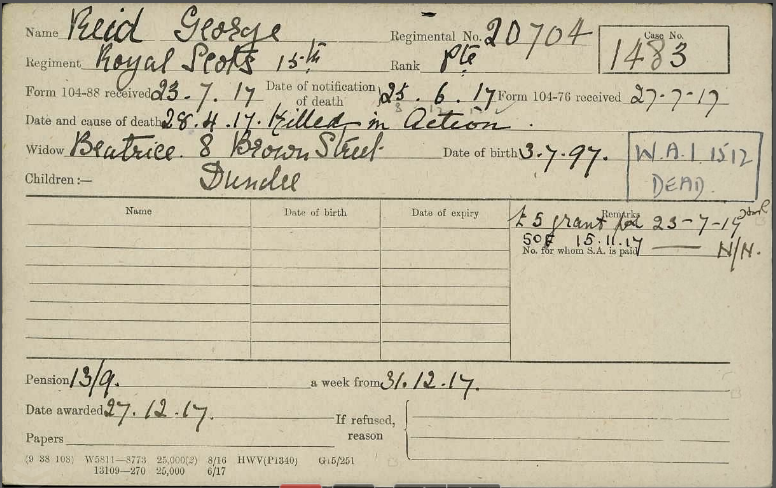 Name Reid George Regimental No. 20704 Case No. 1483
Regiment Royal Scots 15th Rank Pte
Form 104-88 received 23.7.17 Date of notification of death 25.6.17 Form 104-76 received 27-7-17
Date and cause of death 28.4.17. Killed in Action.
Widow Beatrice. 8 Brown Street Date of birth 3.7.97. W.A.I. 1512
Children:— Dundee DEAD.
Name Date of birth Date of expiry Remarks
£5 grant pd 23-7-17
SOF 15.11.17 N/N.
No. for whom S.A. is paid
Pension 13/9. a week from 31.12.17.
Date awarded 27.12.17. If refused,
Papers reason
(9 38 108) W5811—8773 25,000(2) 8/16 HWV(P1340) G15/251
13109—270 25,000 6/17